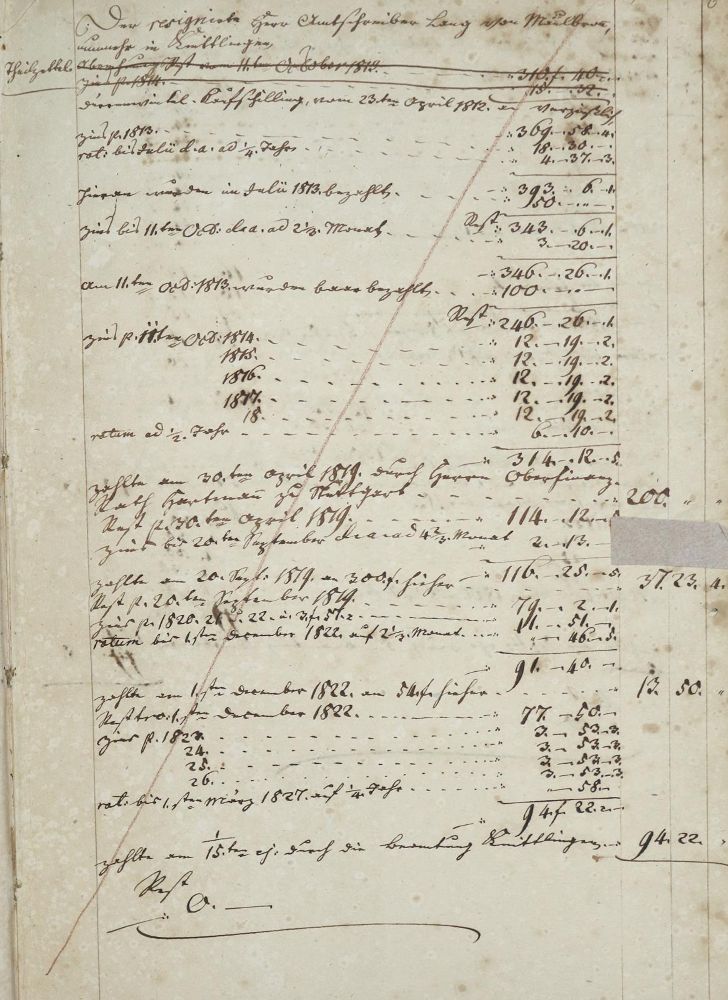 6. Der resignirte Herr Amtschreiber Lang von Maulbron,
nunmehr in Knittlingen,
Theilzettel. Abrechnung Rest vom 11.ten October 1813. 310.f. 40.
Zins p. 1814. 15. 32.
Kaufschilling, vom 23.ten April 1812. an verzinßlich
369. 58. 4.
Zins p. 1813. 18. 30.
rat: bis Julii d. a. ad 1/4. Jahr 4. 37. 3.
393. 6. 1.
Hieran wurden in Julii 1813. bezahlt. 50.
Rest 343. 6. 1.
Zins bis 11.ten Oct: d. a. ad 2 1/3. Monat 3. 20.
346. 26. 1.
Am 11.ten Oct: 1813. wurden baar bezahlt 100.
Rest 246. 26. 1.
Zins p. 11ten Oct: 1814. 12. 19. 2.
1815. 12. 19. 2.
1816. 12. 19. 2.
1817. 12. 19. 2.
18. 12. 19. 2.
ratum ad 1/2. Jahr 6. 10.
314. 12. 5.
zahlte am 30.ten April 1819. durch Herrn Oberfinanz-
Rath Hartmann zu Stuttgart 200. " "
Rest p. 30.ten April 1819. 114. 12. 5.
Zins bis 20.ten September d. a. ad 4 2/3. Monat 2. 13.
116. 25. 5.
zahlte am 20. Sept. 1819. an 300 f. hieher 37. 23. 4.
Rest p. 20.ten September 1819. 79. 2. 1.
Zins p. 1820. 21. u. 22. a. 3. f. 57. 2 11. 51.
ratum bis 1.sten December 1822. auf 2 1/3. Monat 46. 5.
91. 40.
zahlte am 1.sten December 1822. an 54 f. hieher 13. 50. "
Rest pro 1.sten December 1822. 77. 50.
Zins p. 1823. 3. 53. 3.
24. 3. 53. 3.
25. 3. 53. 3.
26. 3. 53. 3.
rat: bis 1.sten Märg 1827. auf 1/4. Jahr 58.
94 f 22.
zahlte am 15.ten ej. durch die Beamtung Knittlingen 94. 22. "
Rest
0.